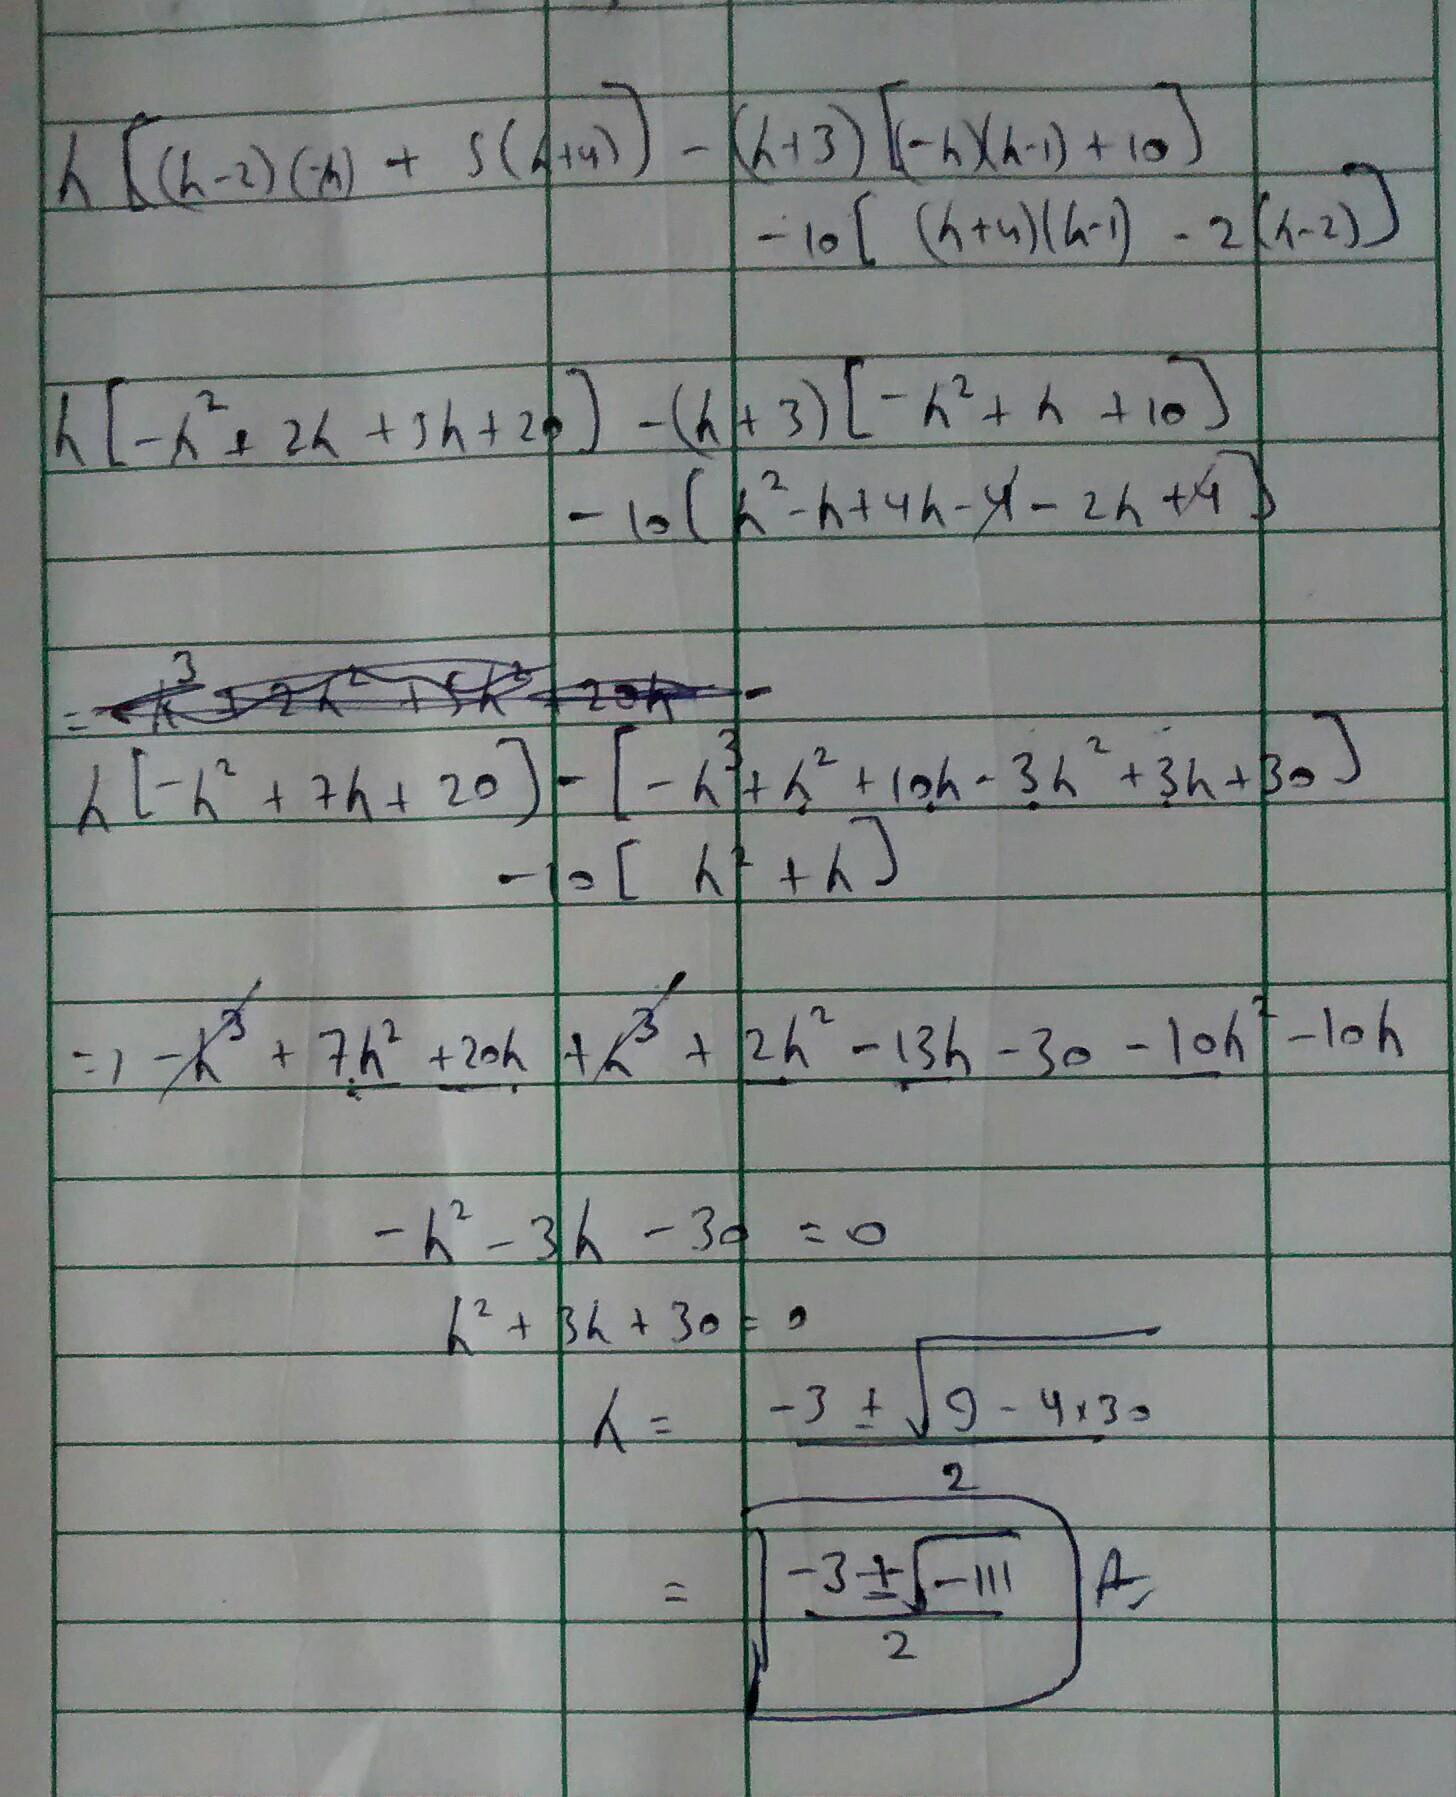 h[(h-2)(-h) + 5(h+4)] - (h+3)[(-h)(h-1)+10]
-10[ (h+4)(h-1) - 2(h-2)]
h[-h²+2h+5h+20] -(h+3)[-h²+h+10]
-10[h²-h+4h-4-2h+4]
= -h³+2h²+5h²+20h -
h[-h²+7h+20]-[-h³+h²+10h-3h²+3h+30]
-10[ h²+h]
=) -h³+7h²+20h+h³+2h²-13h-30-10h²-10h
-h²-3h-30=0
h²+3h+30=0
h = -3 ± √9-4×30 / 2
= -3±√-111 / 2 A